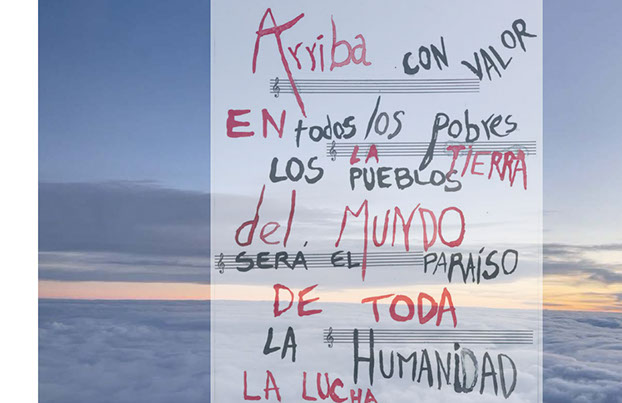 Arriba CON VALOR
EN todos los pobres
LA TIERRA
LOS PUEBLOS
del. MUNDO
SERA EL PARAÍSO
DE TODA
LA HUMANIDAD
LA LUCHA